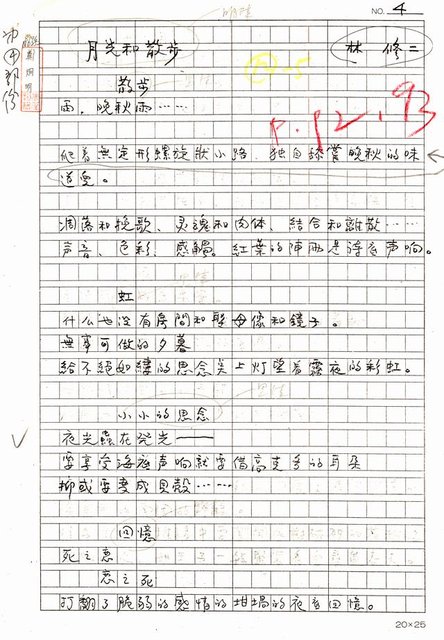 NO. 4
月光和散步
林修二
散步
雨，晚秋雨……
P.92,93
爬着無定形螺旋狀小路、独自舔嘗晚秋的味
道要。
凋落和挽歌、灵魂和肉体、結合和離散……
声音、色彩、感觸。紅葉的陣雨是
声响。
虹
什么也没有房間和聖母像和鏡子。
無事可做的夕暮
給不絕如縷的思念点上灯望着霧夜的彩虹。
小小的思念
夜光蟲在発光——
要享受海底声响就要借高克多的耳朵
抑或要變成貝殼……
回憶
死之恋
恋之死
打翻了脆弱的感情的坩堝的夜有回憶。
20×25